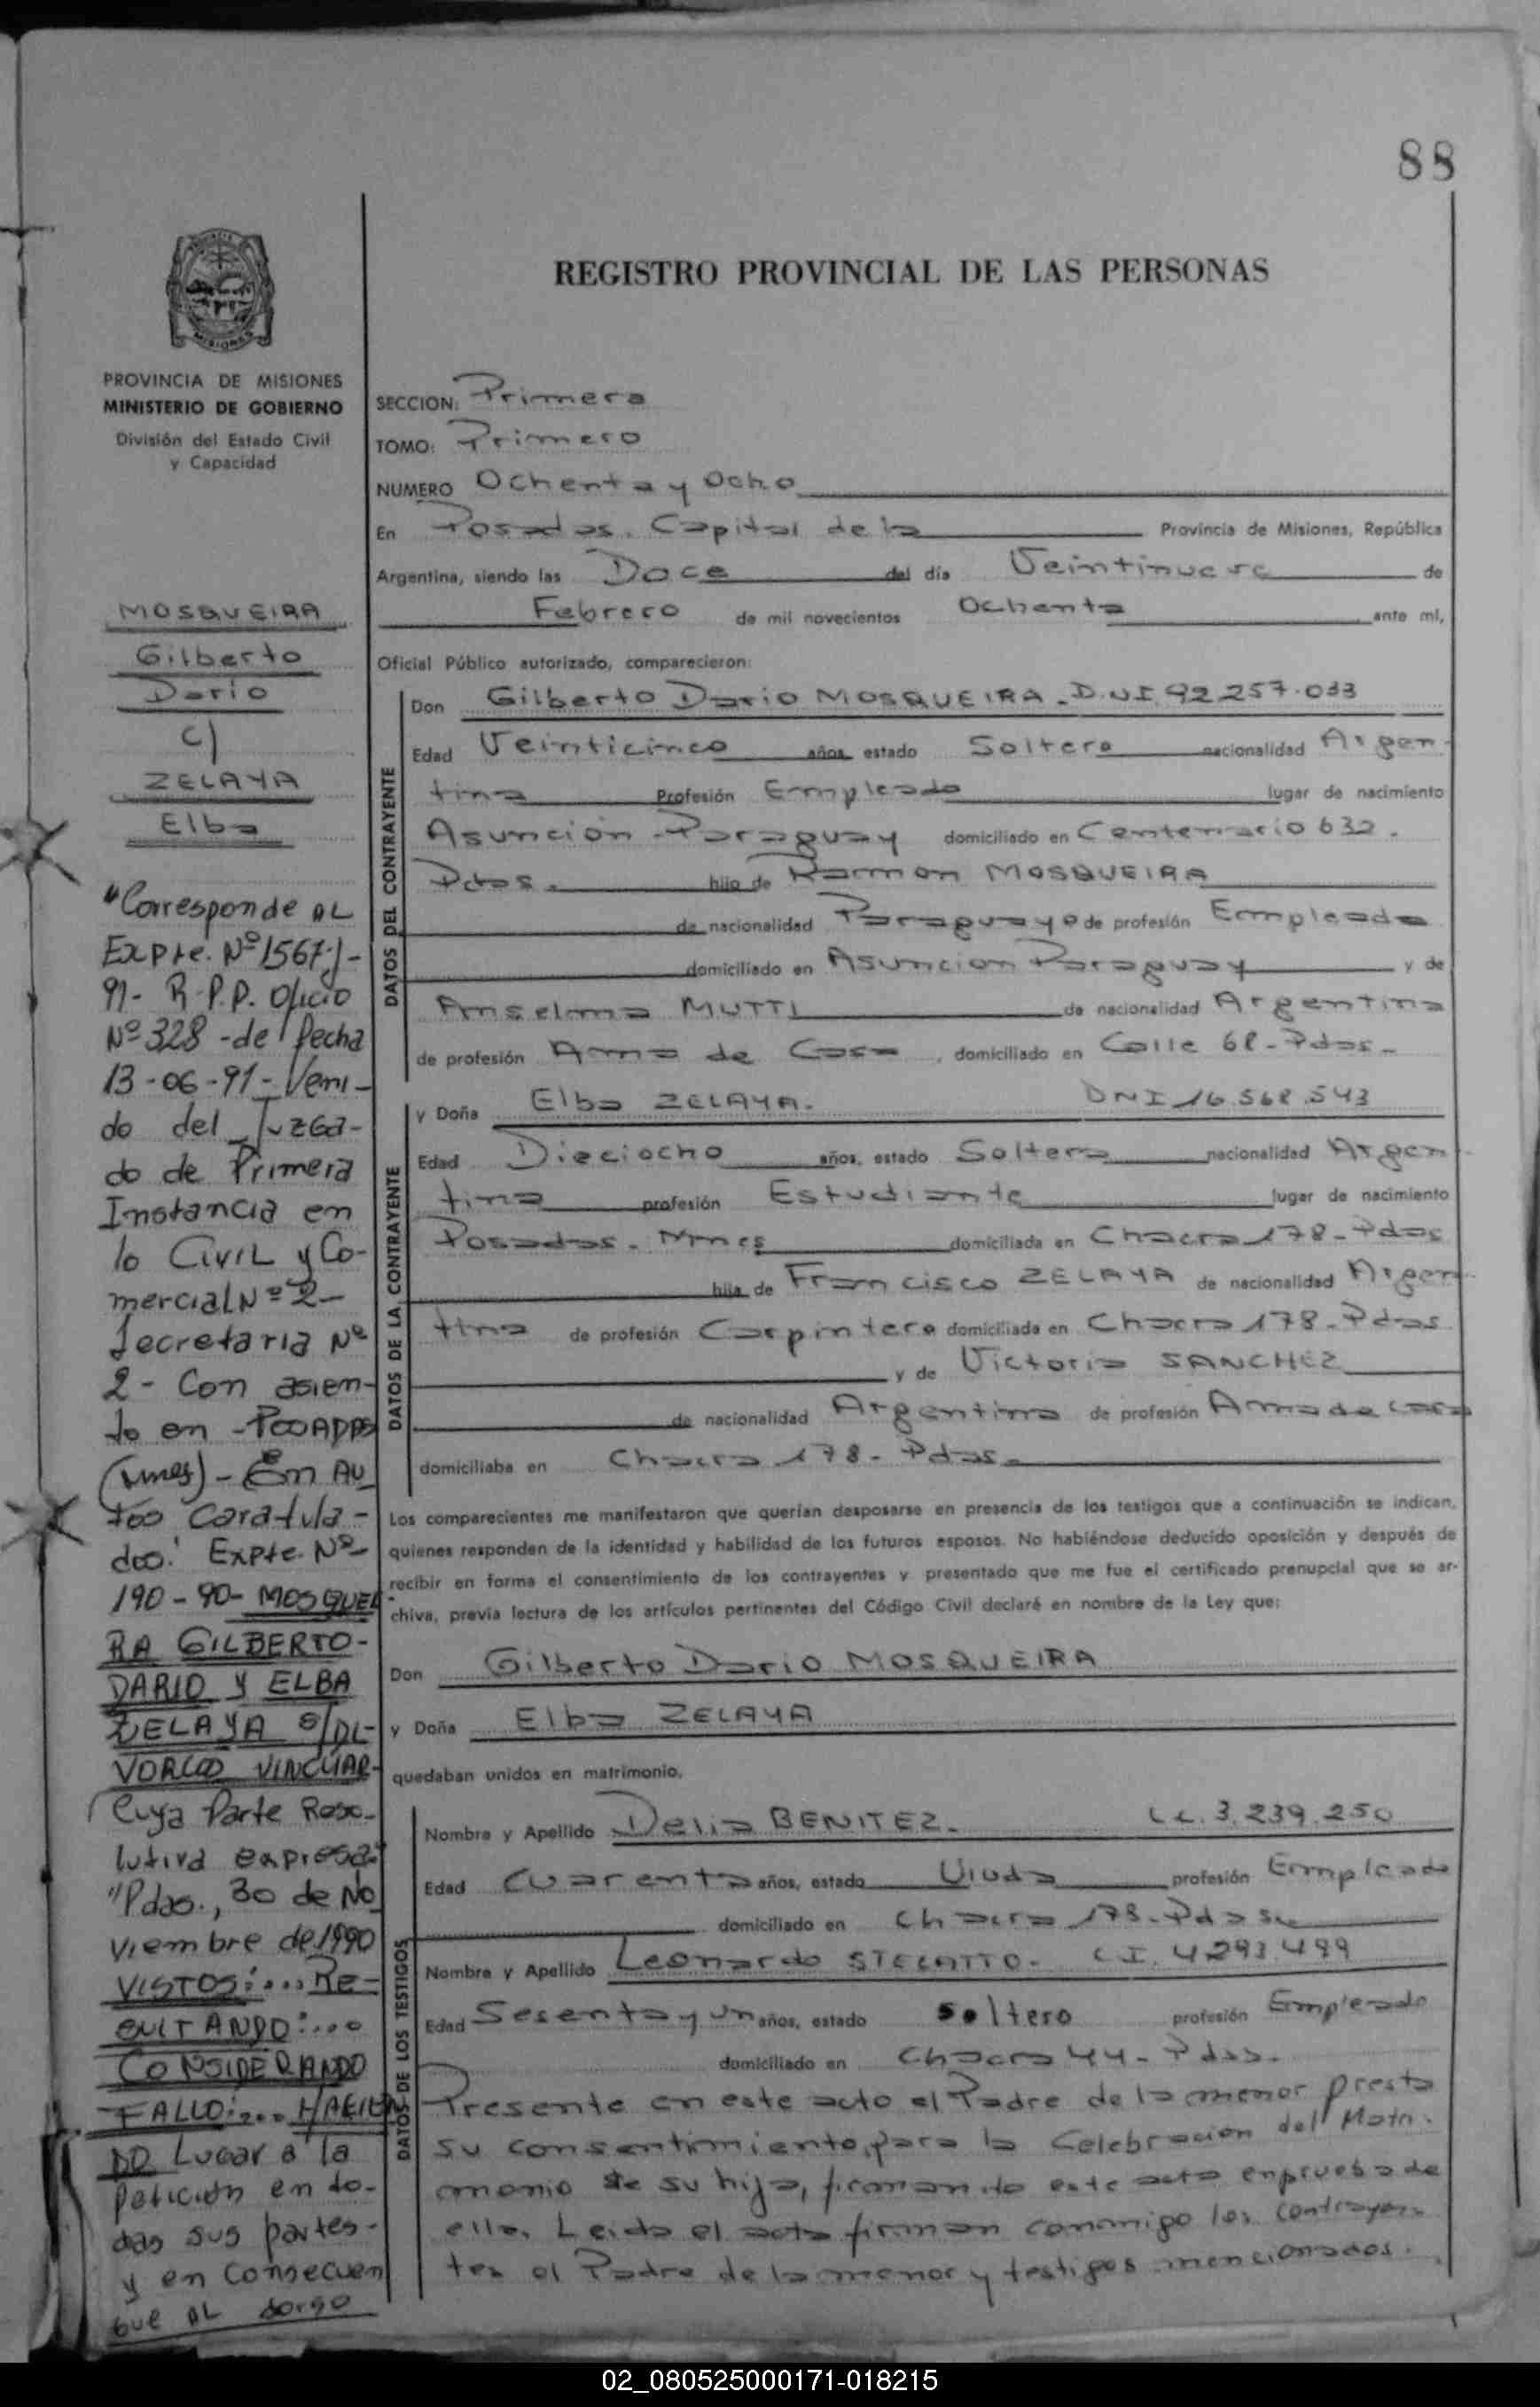 88
REGISTRO PROVINCIAL DE LAS PERSONAS
PROVINCIA DE MISIONES
MINISTERIO DE GOBIERNO
División del Estado Civil
y Capacidad
MOSQUEIRA
Gilberto
Dario
c/
ZELAYA
Elba
"Corresponde AL
Expte. Nº 1567-J-
91- R.P.P. Oficio
Nº 328 -de fecha
13-06-91- Veni-
do del Juzga-
do de Primera
Instancia en
lo Civil y Co-
mercial Nº 2-
Secretaria Nº
2- Con asien-
to en -POSADAS
(Mnes)- En Au
tos Caratula-
dos: Expte. Nº
190-90- MOSQUEI
RA GILBERTO-
DARIO Y ELBA
ZELAYA S/DI-
VORCIO VINCULAR-
Cuya Parte Reso-
lutiva expresa:
"Pdas., 30 de No
viembre de 1990
VISTOS:... RE-
SULTANDO:...
CONSIDERANDO
FALLO:... HACIEN
DO Lugar a la
Petición en to-
das sus partes-
y en Consecuen
gue AL dorso
SECCION: Primera
TOMO: Primero
NUMERO Ochenta y Ocho
En Posadas. Capital de la Provincia de Misiones, República
Argentina, siendo las Doce del día Veintinueve de
Febrero de mil novecientos Ochenta ante mí,
Oficial Público autorizado, comparecieron:
DATOS DEL CONTRAYENTE
Don Gilberto Dario MOSQUEIRA - D.N.I. 92.257.033
Edad Veinticinco años, estado Soltero nacionalidad Argen-
tina Profesión Empleado lugar de nacimiento
Asunción - Paraguay domiciliado en Centenario 632.
Pdas. hijo de Ramon MOSQUEIRA
de nacionalidad Paraguaya de profesión Empleado
domiciliado en Asuncion Paraguay y de
Anselma MUTTI de nacionalidad Argentina
de profesión Ama de Casa, domiciliado en Calle 68- Pdas-
DATOS DE LA CONTRAYENTE
y Doña Elba ZELAYA. DNI 16.568.543
Edad Dieciocho años, estado Soltera nacionalidad Argen-
tina profesión Estudiante lugar de nacimiento
Posadas. Mnes domiciliada en Chacra 178- Pdas
hija de Francisco ZELAYA de nacionalidad Argen-
tina de profesión Carpintero domiciliada en Chacra 178- Pdas
y de Victoria SANCHEZ
de nacionalidad Argentina de profesión Ama de casa
domiciliaba en Chacra 178- Pdas-
Los comparecientes me manifestaron que querían desposarse en presencia de los testigos que a continuación se indican,
quienes responden de la identidad y habilidad de los futuros esposos. No habiéndose deducido oposición y después de
recibir en forma el consentimiento de los contrayentes y presentado que me fue el certificado prenupcial que se ar-
chiva, previa lectura de los artículos pertinentes del Código Civil declaré en nombre de la Ley que:
Don Gilberto Dario MOSQUEIRA
y Doña Elba ZELAYA
quedaban unidos en matrimonio.
DATOS DE LOS TESTIGOS
Nombre y Apellido Delia BENITEZ. L.C. 3.239.250
Edad Cuarenta años, estado Viuda profesión Empleada
domiciliado en Chacra 178- Pdas
Nombre y Apellido Leonardo C.I. 4.293.499
Edad Sesenta y un años, estado soltero profesión Empleado
domiciliado en Chacra 44- Pdas.
Presente en este acto el Padre de la menor presta
su consentimiento, para la Celebracion del Matri-
monio de su hija, firmando este acta en prueba de
ello. Leida el acta firman conmigo los contrayen-
tes el Padre de la menor y testigos mencionados.
02_080525000171-018215